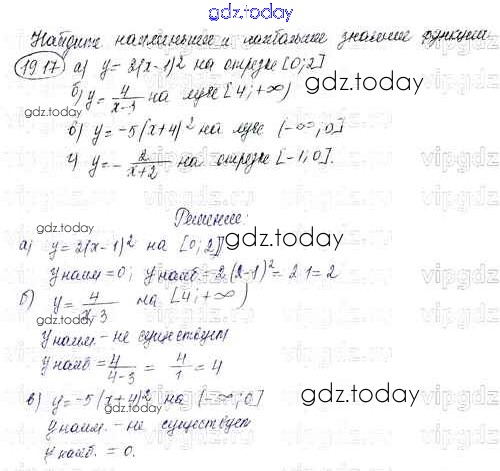 gdz.today
Найдите наименьшее и наибольшее значение функции
19.17 а) y = 2(x-1)² на отрезке [0;2]
б) y = 4/(x-3) на луче [4;+∞)
в) y = -5(x+4)² на луче (-∞;0]
г) y = - 2/(x+2) на отрезке [-1;0].
Решение:
а) y = 2(x-1)² на [0;2]
y наим = 0; y наиб = 2(2-1)² = 2·1 = 2
б) y = 4/(x-3) на [4;+∞)
y наим. - не существует
y наиб = 4/(4-3) = 4/1 = 4
в) y = -5(x+4)² на (-∞;0]
y наим. - не существует
y наиб. = 0.